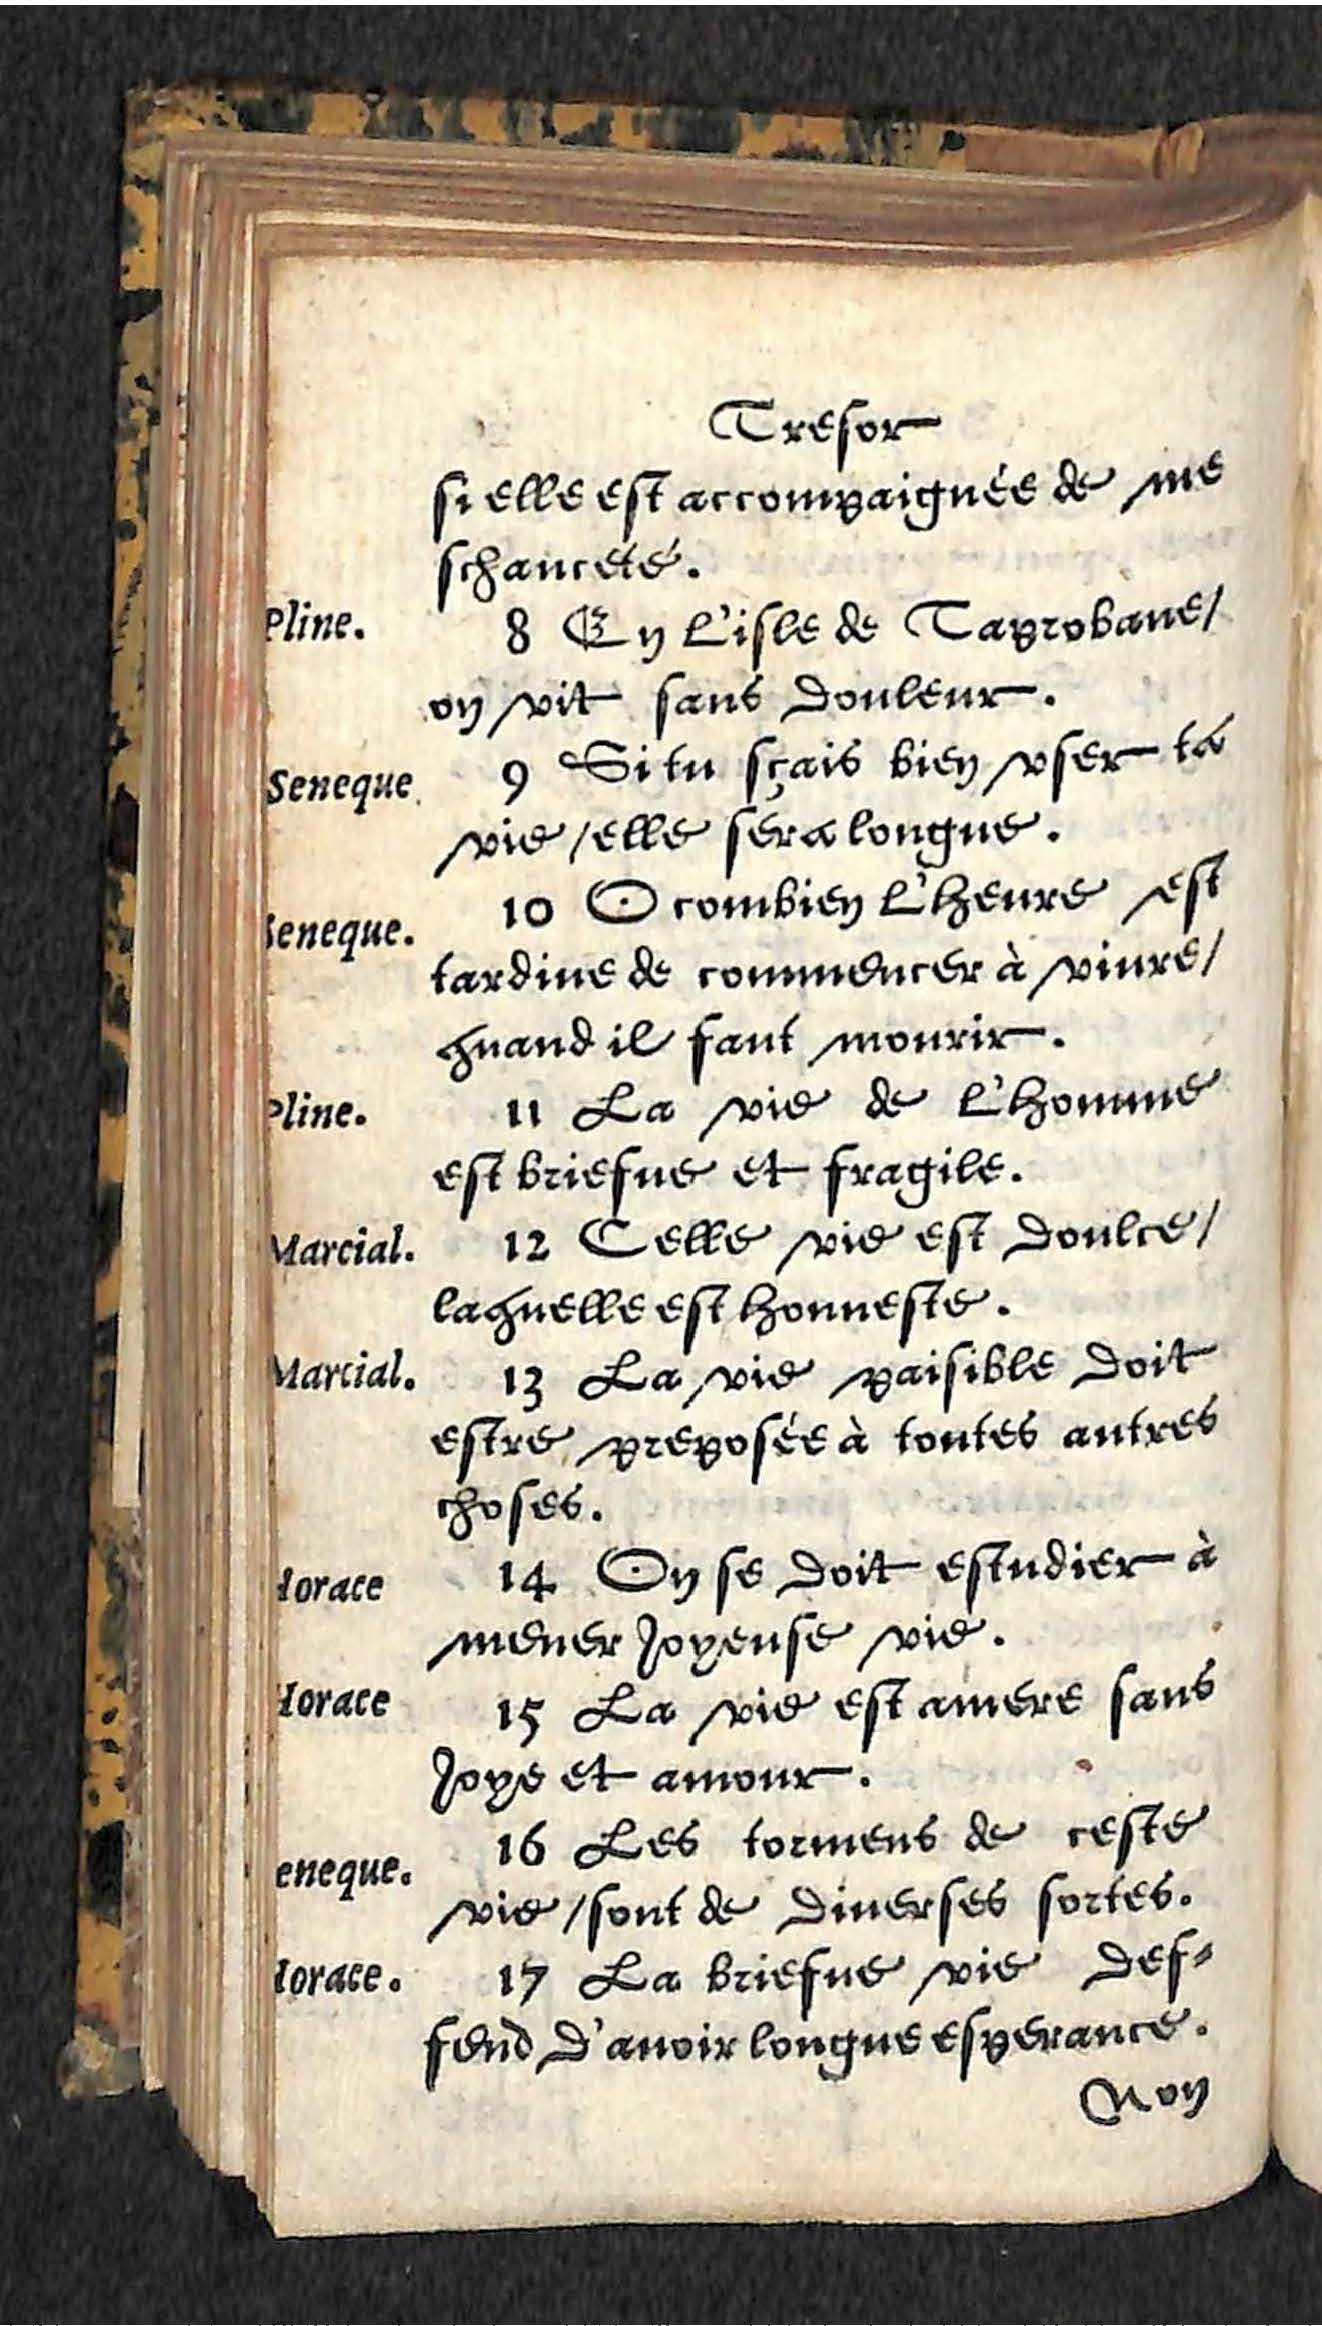 Tresor
si elle est accompaignée de me
schanceté.
Pline. 8 En l'isle de Taprobane/
on vit sans douleur.
Seneque. 9 Si tu sçais bien vser ta
vie/elle sera longue.
Seneque. 10 O combien l'heure est
tardiue de commencer à viure/
quand il faut mourir.
Pline. 11 La vie de l'homme
est briefue et fragile.
Marcial. 12 Celle vie est doulce/
laquelle est honneste.
Marcial. 13 La vie paisible doit
estre preposée à toutes autres
choses.
Horace 14 On se doit estudier à
mener Joyeuse vie.
Horace 15 La vie est amere sans
Joye et amour.
eneque. 16 Les tormens de ceste
vie/sont de diuerses sortes.
Horace. 17 La briefue vie def-
fend d'auoir longue esperance.
Non